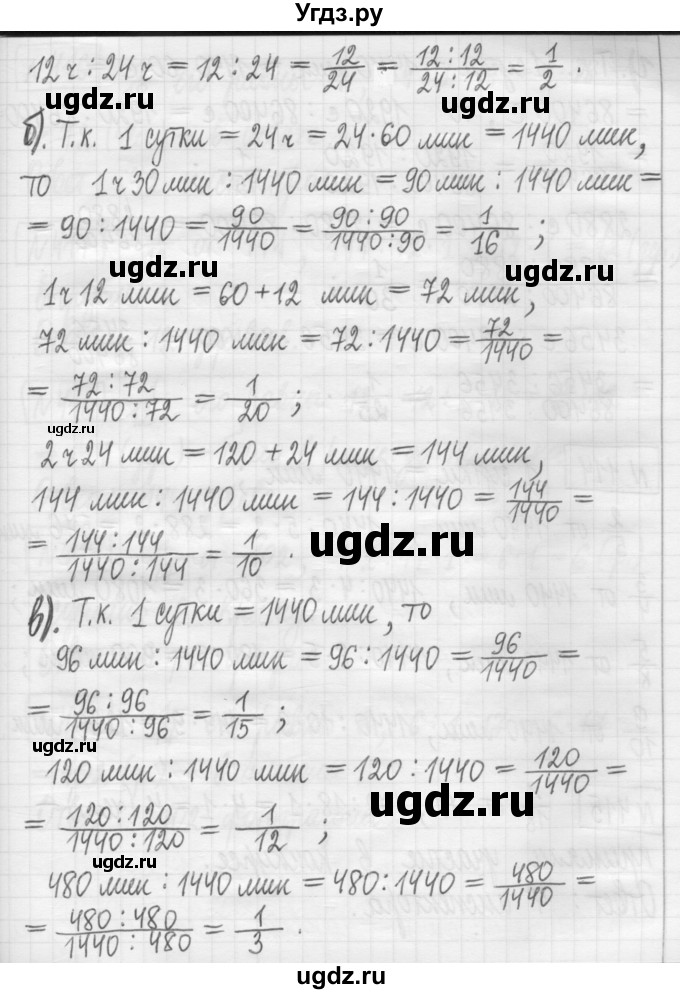 Угдз.ру
12 ч : 24 ч = 12 : 24 = 12/24 = 12 : 12/24 : 12 = 1/2 .
ugdz.ru ugdz.ru
б). Т.к. 1 сутки = 24 ч = 24 · 60 мин = 1440 мин,
то 1 ч 30 мин : 1440 мин = 90 мин : 1440 мин =
= 90 : 1440 = 90/1440 = 90 : 90/1440 : 90 = 1/16 ;
ugdz.ru ugdz.ru
1 ч 12 мин = 60 + 12 мин = 72 мин,
72 мин : 1440 мин = 72 : 1440 = 72/1440 =
= 72 : 72/1440 : 72 = 1/20 ;
ugdz.ru
2 ч 24 мин = 120 + 24 мин = 144 мин,
144 мин : 1440 мин = 144 : 1440 = 144/1440 =
= 144 : 144/1440 : 144 = 1/10 .
ugdz.ru
ugdz.ru
в). Т.к. 1 сутки = 1440 мин, то
96 мин : 1440 мин = 96 : 1440 = 96/1440 =
= 96 : 96/1440 : 96 = 1/15 ;
ugdz.ru
120 мин : 1440 мин = 120 : 1440 = 120/1440 =
ugdz.ru
= 120 : 120/1440 : 120 = 1/12 ;
ugdz.ru
480 мин : 1440 мин = 480 : 1440 = 480/1440 =
= 480 : 480/1440 : 480 = 1/3 .
ugdz.ru